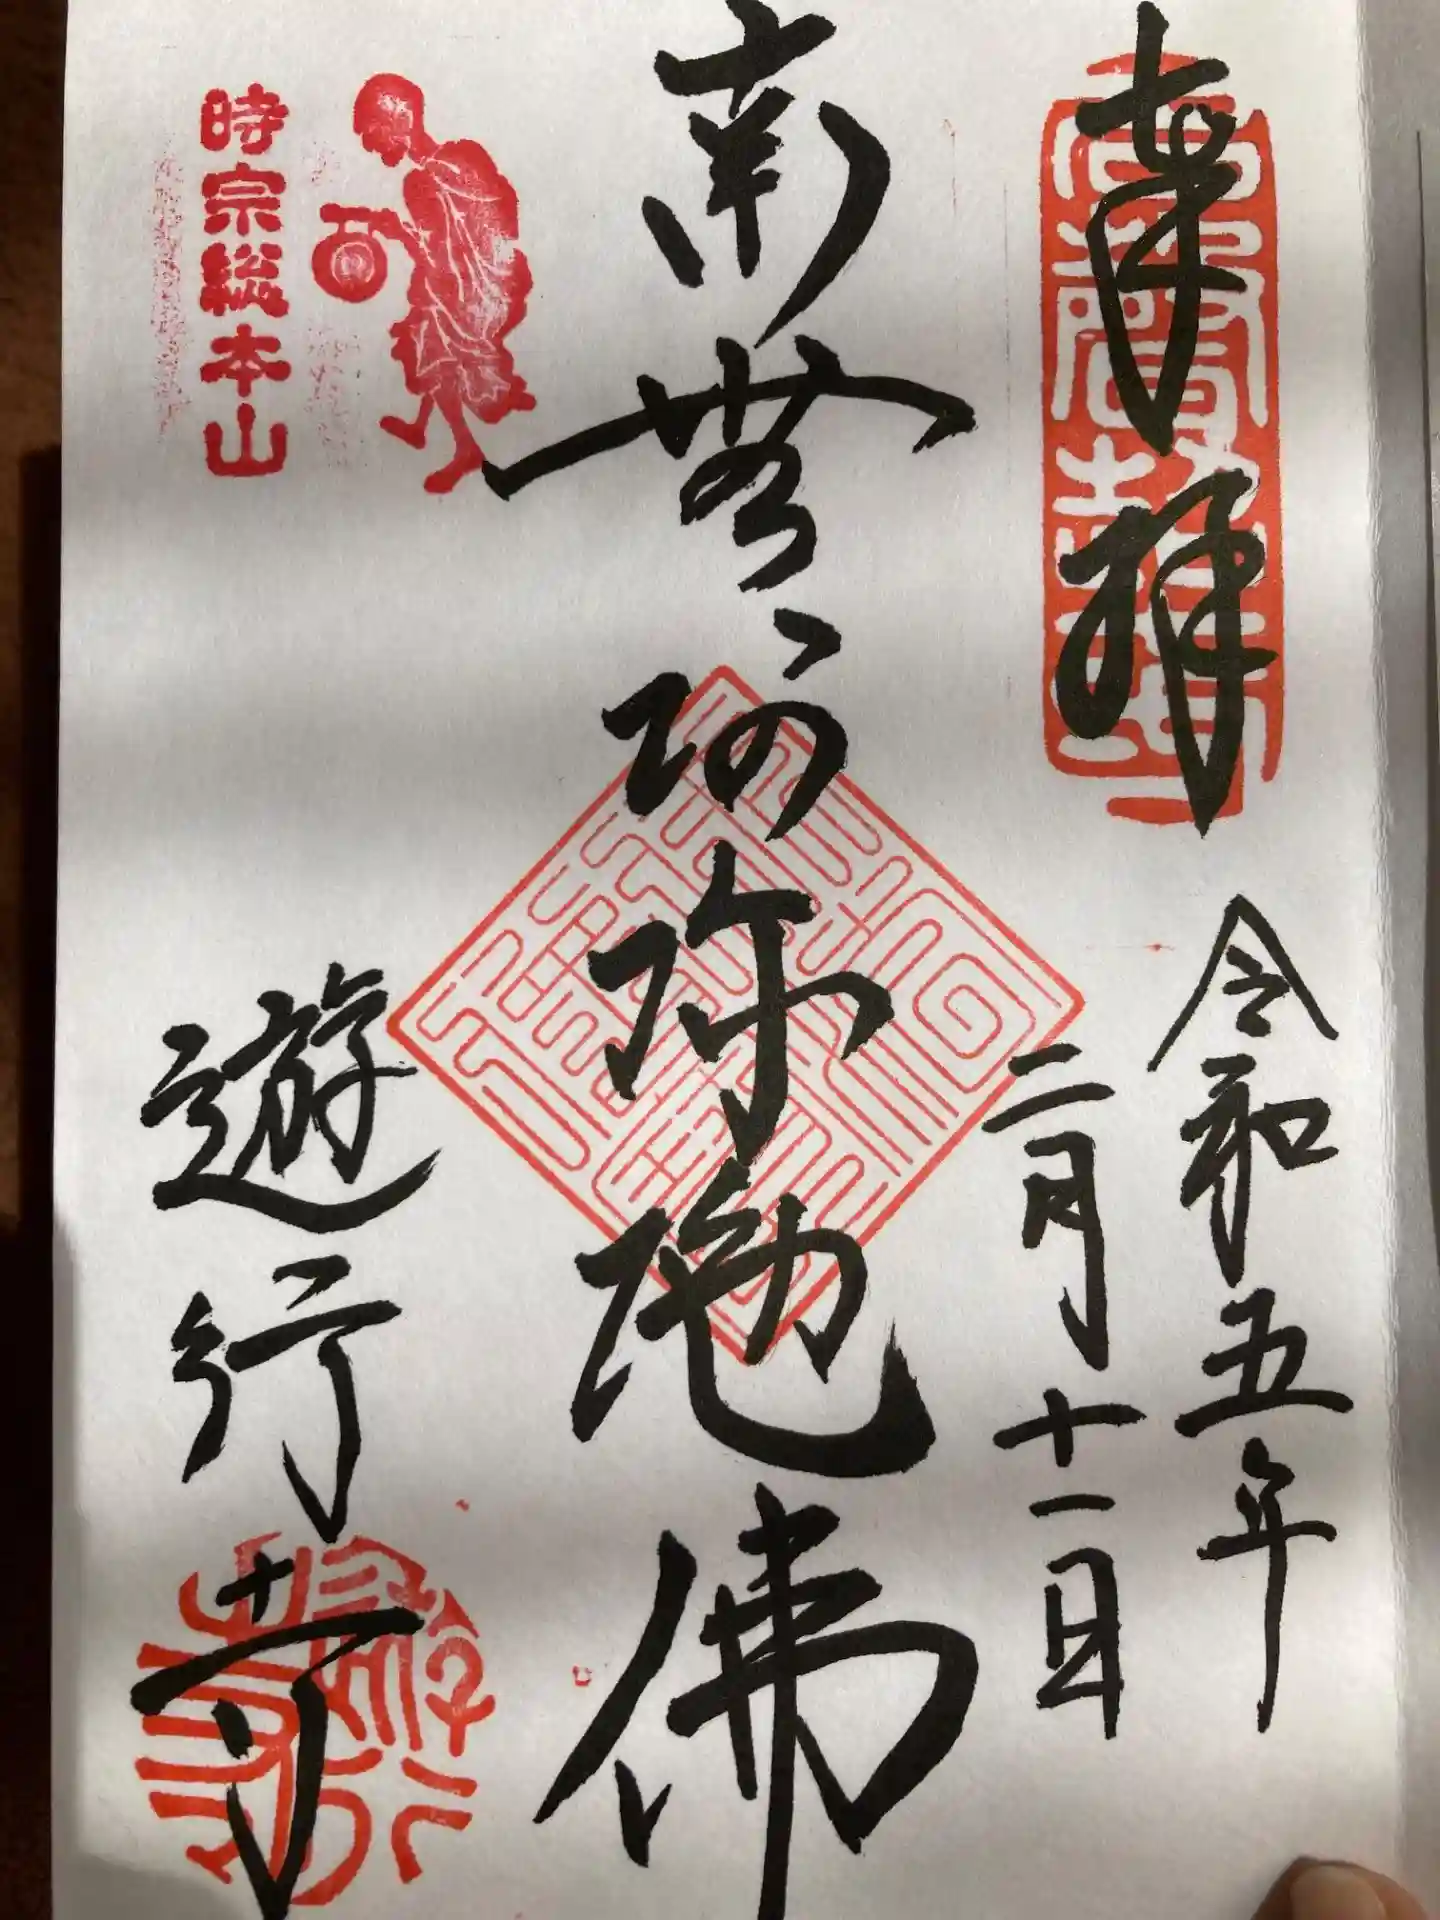 奉拝
令和五年
二月十一日
南無阿弥陀佛
時宗総本山
遊行寺